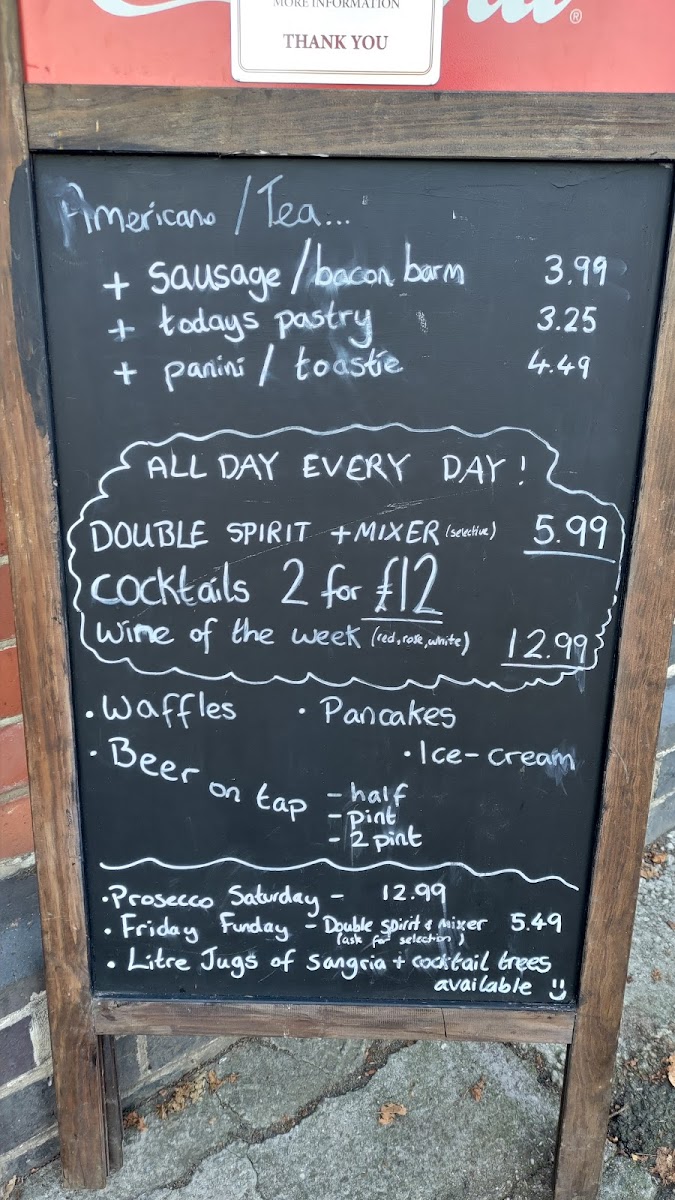 MORE INFORMATION
THANK YOU
Americano / Tea...
+ sausage / bacon barm 3.99
+ todays pastry 3.25
+ panini / toastie 4.49
ALL DAY EVERY DAY !
DOUBLE SPIRIT + MIXER (selective) 5.99
COCKtails 2 for £12
Wine of the week (red, rose, white) 12.99
• Waffles • Pancakes
• Beer on tap • Ice-cream
- half
- pint
- 2 pint
• Prosecco Saturday - 12.99
• Friday Funday - Double spirit & mixer 5.49
(ask for selection)
• Litre Jugs of sangria + cocktail trees
available